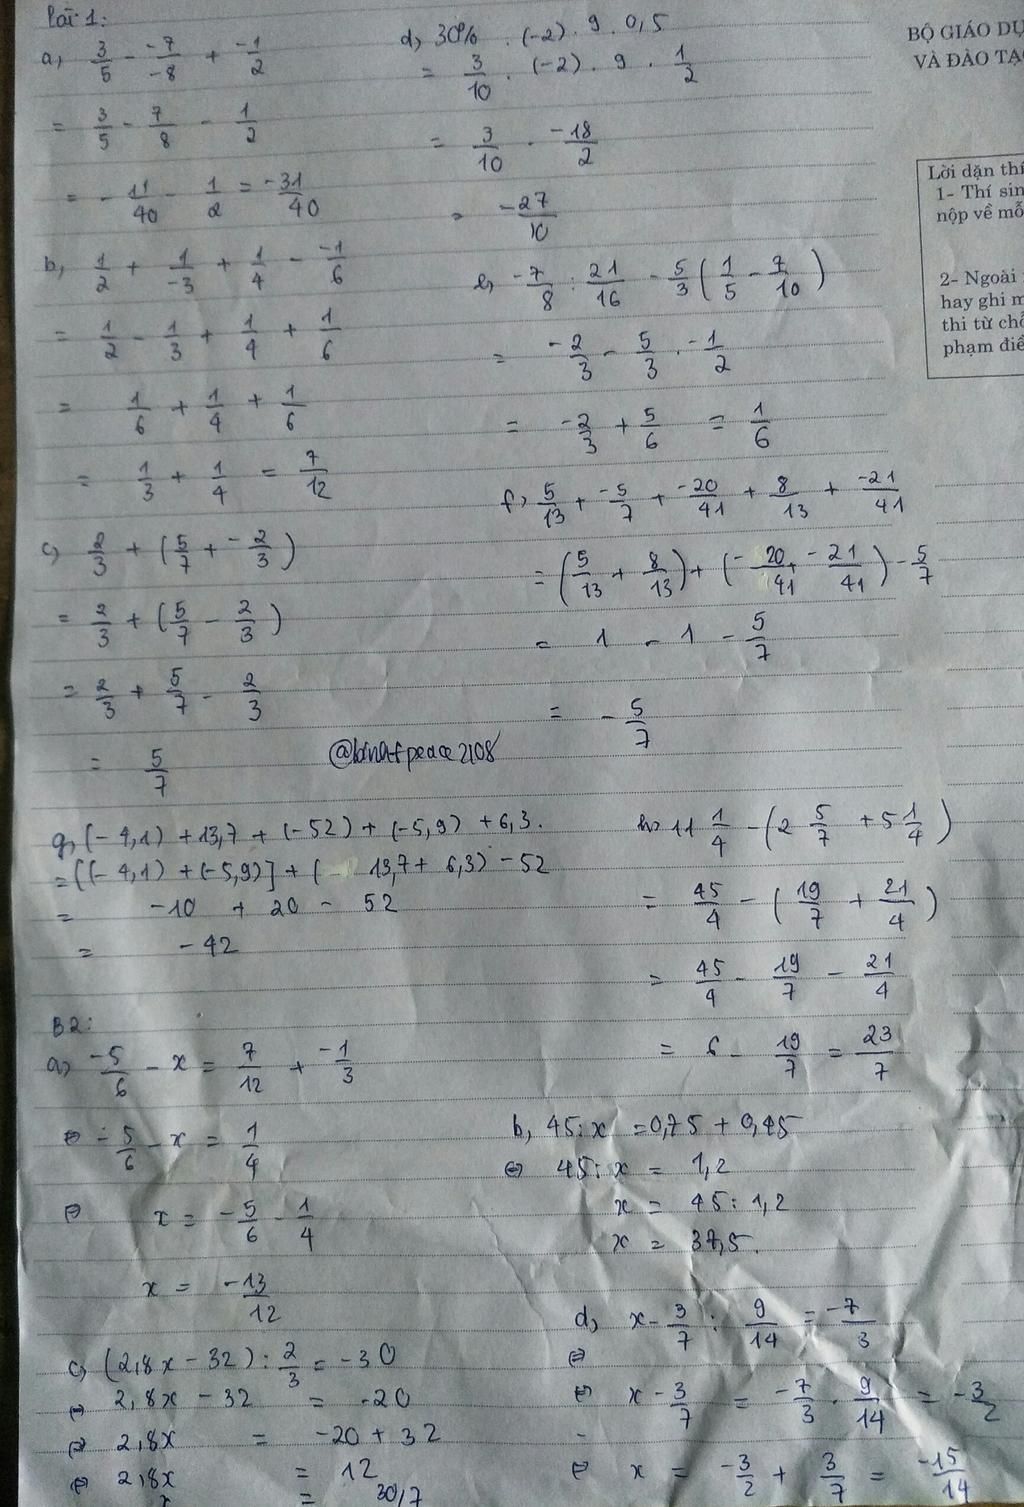 Bài 1:
a, 3/5 - -7/-8 + -1/2
= 3/5 - 7/8 - 1/2
= - 11/40 - 1/2 = -31/40
b, 1/2 + 1/-3 + 1/4 - -1/6
= 1/2 - 1/3 + 1/4 + 1/6
= 1/6 + 1/4 + 1/6
= 1/3 + 1/4 = 7/12
c, 2/3 + (5/7 + -2/3)
= 2/3 + (5/7 - 2/3)
= 2/3 + 5/7 - 2/3
= 5/7
d, 30% . (-2) . 9 . 0,5
= 3/10 . (-2) . 9 . 1/2
= 3/10 . -18/2
= -27/10
e, -7/8 : 21/16 - 5/3 (1/5 - 7/10)
= -2/3 - 5/3 . -1/2
= -2/3 + 5/6 = 1/6
f, 5/13 + -5/7 + -20/41 + 8/13 + -21/41
= (5/13 + 8/13) + (- 20/41 - 21/41) - 5/7
= 1 - 1 - 5/7
= - 5/7
g, (-4,1) + 13,7 + (-52) + (-5,9) + 6,3.
= [(-4,1) + (-5,9)] + ( 13,7 + 6,3) - 52
= -10 + 20 - 52
= -42
h, 11 1/4 - (2 5/7 + 5 1/4)
= 45/4 - (19/7 + 21/4)
= 45/4 - 19/7 - 21/4
= 6 - 19/7 = 23/7
B2:
a, -5/6 - x = 7/12 + -1/3
⇔ -5/6 - x = 1/4
⇔ x = -5/6 - 1/4
x = -13/12
b, 45 : x = 0,75 + 0,45
⇔ 45 : x = 1,2
x = 45 : 1,2
x = 37,5.
c, (2,8x - 32) : 2/3 = -30
⇔ 2,8x - 32 = -20
⇔ 2,8x = -20 + 32
⇔ 2,8x = 12
x = 30/7
d, x - 3/7 : 9/14 = -7/3
⇔
⇔ x - 3/7 = -7/3 . 9/14 = -3/2
⇔ x = -3/2 + 3/7 = -15/14
BỘ GIÁO DỤ
VÀ ĐÀO TẠ
Lời dặn thí
1- Thí sin
nộp về mỗ
2- Ngoài
hay ghi m
thi từ chố
phạm điề